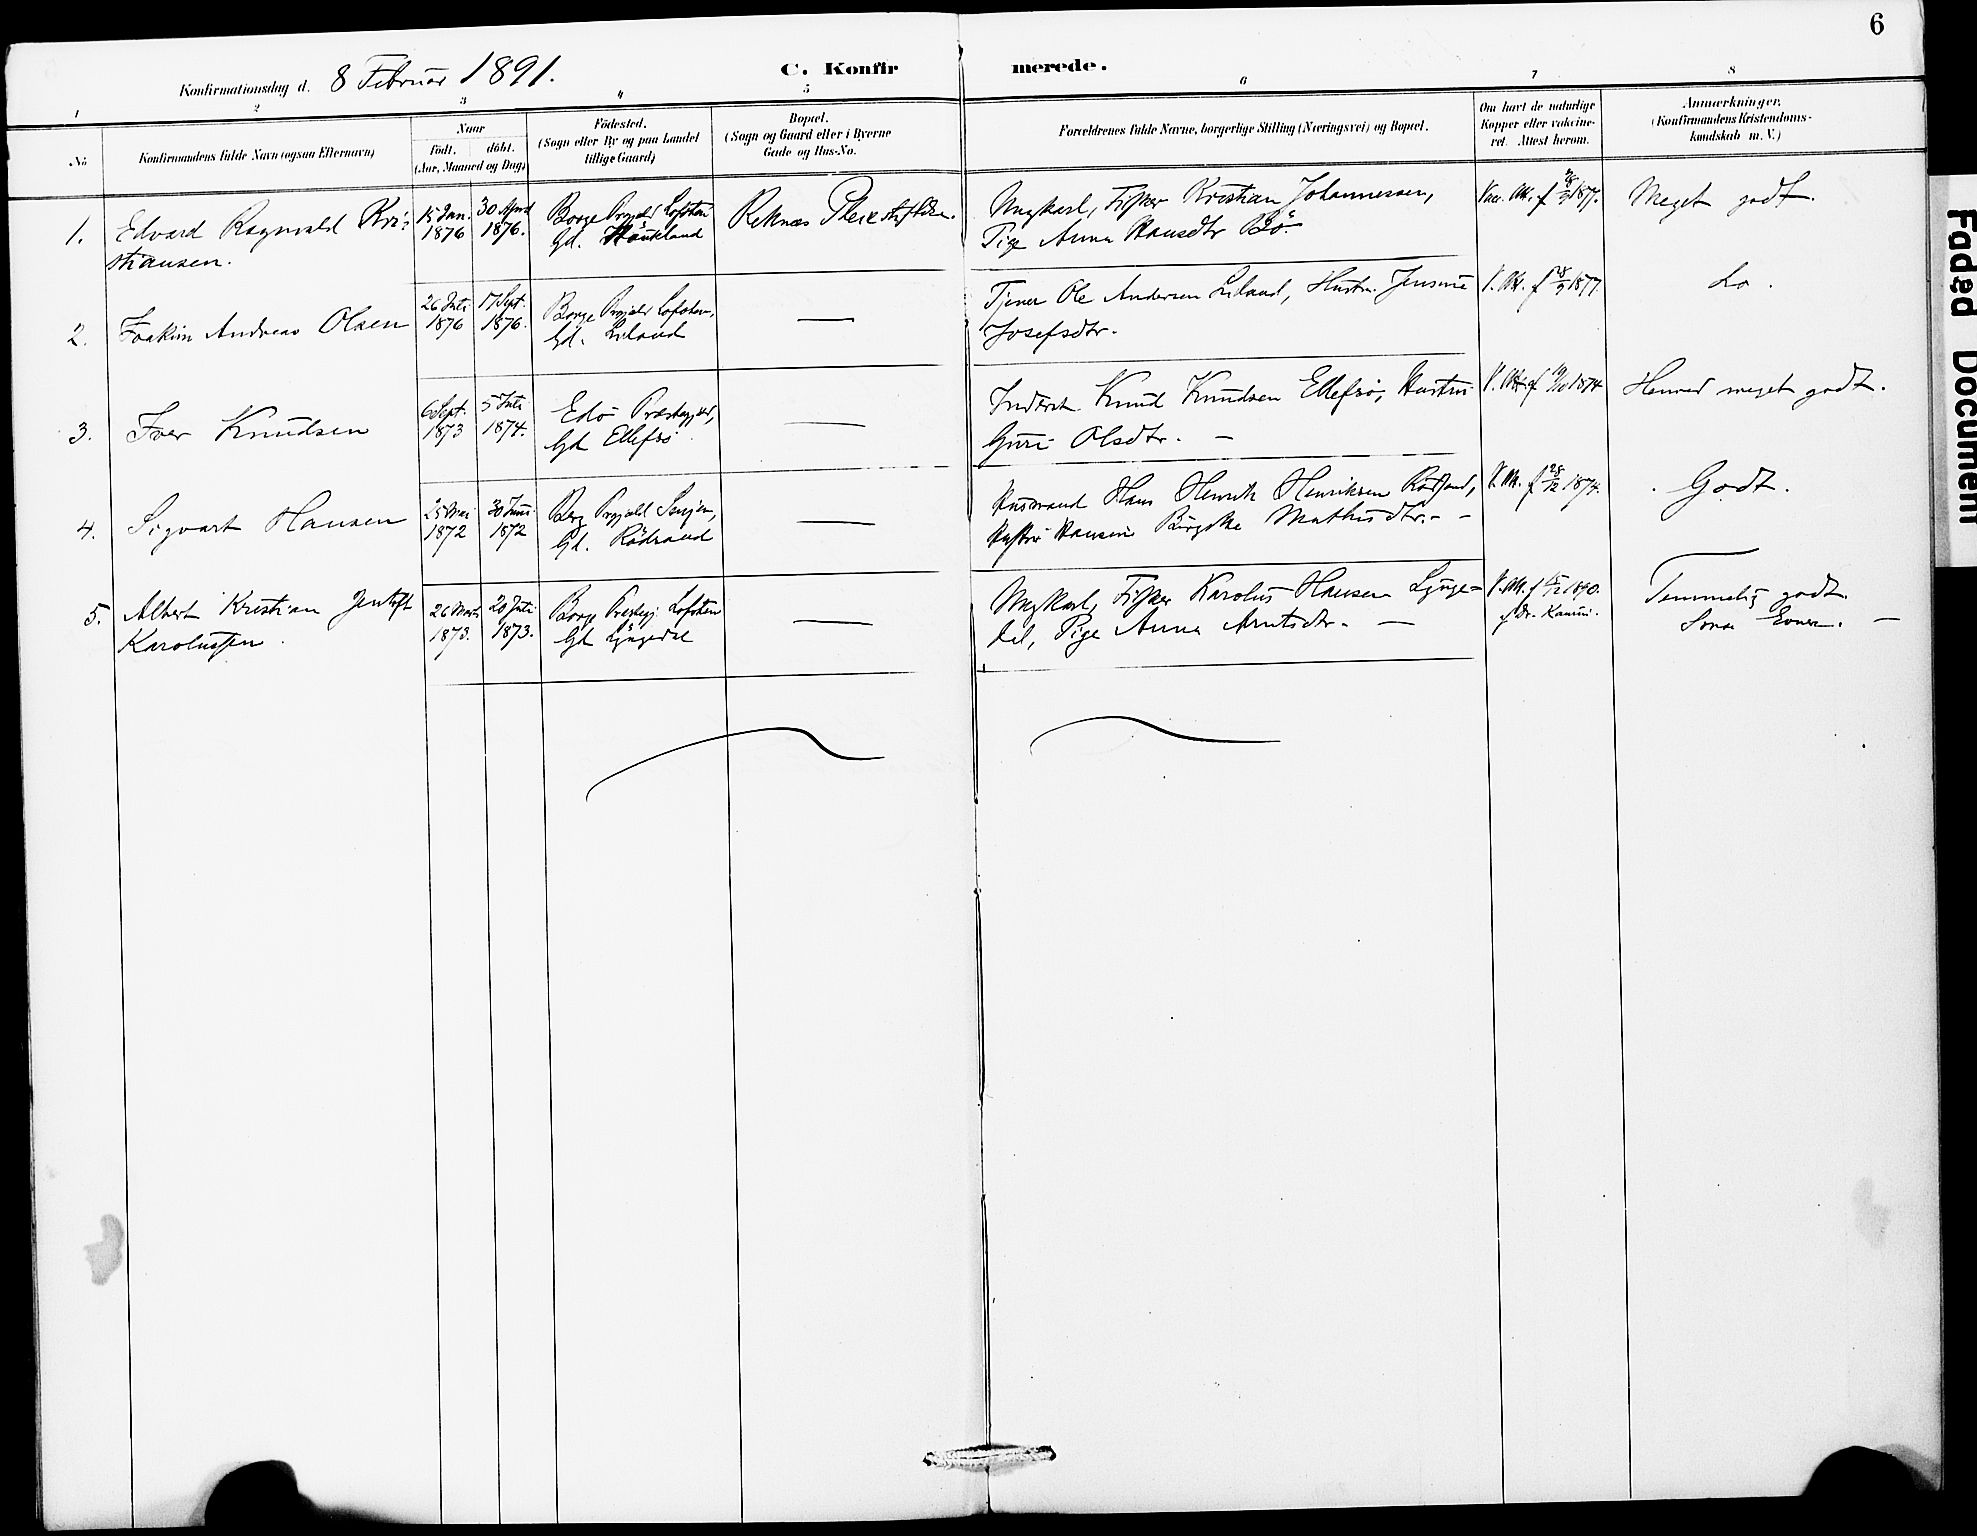 6
Konfirmationsdag d. 8 Februar 1891.
C. Konfirmerede.
1 2 3 4 5 6 7 8
No
Konfirmandens fulde Navn (ogsaa Efternavn)
Naar
födt. döbt.
(Aar, Maaned og Dag)
Födested.
(Sogn eller By og paa Landet
tillige Gaard)
Bopæl.
(Sogn og Gaard eller i Byerne
Gade og Hus-No.
Forældrenes fulde Navne, borgerlige Stilling (Næringsvei) og Bopæl.
Om havt de naturlige
Kopper eller vaksine-
ret. Attest herom.
Anmærkninger.
(Konfirmandens Kristendoms-
kundskab m. V.)
1. Edvard Ragnvald Kri-
stiansen.
15 Jan.
1876
30 April
1876.
Borge Lofoten
Gd. Haukland
Reknæs Pleiestiftelse.
Ungkarl, Fisker Kristian Johannessen,
Pige Anna Hansdtr Bö.
1877.
Meget godt.
2. Joakim Andreas Olsen
26 Juli
1876
17 Sept.
1876.
Borge Lofoten,
Gd. Liland
—
Tjener Ole Andersen Liland, Hustru Jensine
Josefsdtr.
1877.
do.
3. Iver Knudsen
6 Sept.
1873
5 Juli
1874.
Edö Præstegjeld,
Gd Ellefsö
—
Inderst Knud Knudsen Ellefsö, Hustru
Guri Olsdtr. —
1874
Henved meget godt.
4. Sigvart Hansen
25 Mai
1872
30 Juni
1872
Berg Senjen,
Gd. Rödsand
—
Husmand Hans Henrik Henriksen Rödsand,
28/12 1874.
Godt.
5. Albert Kristian Jentoft
Karolussen
26 Marts
1873.
20 Juli
1873.
Borge Lofoten
Gd
—
Ungkarl, Fisker Karolus Hansen
Pige Anna Arntsdtr. —
1890.
Temmelig godt.
Evner. —
Faded Document